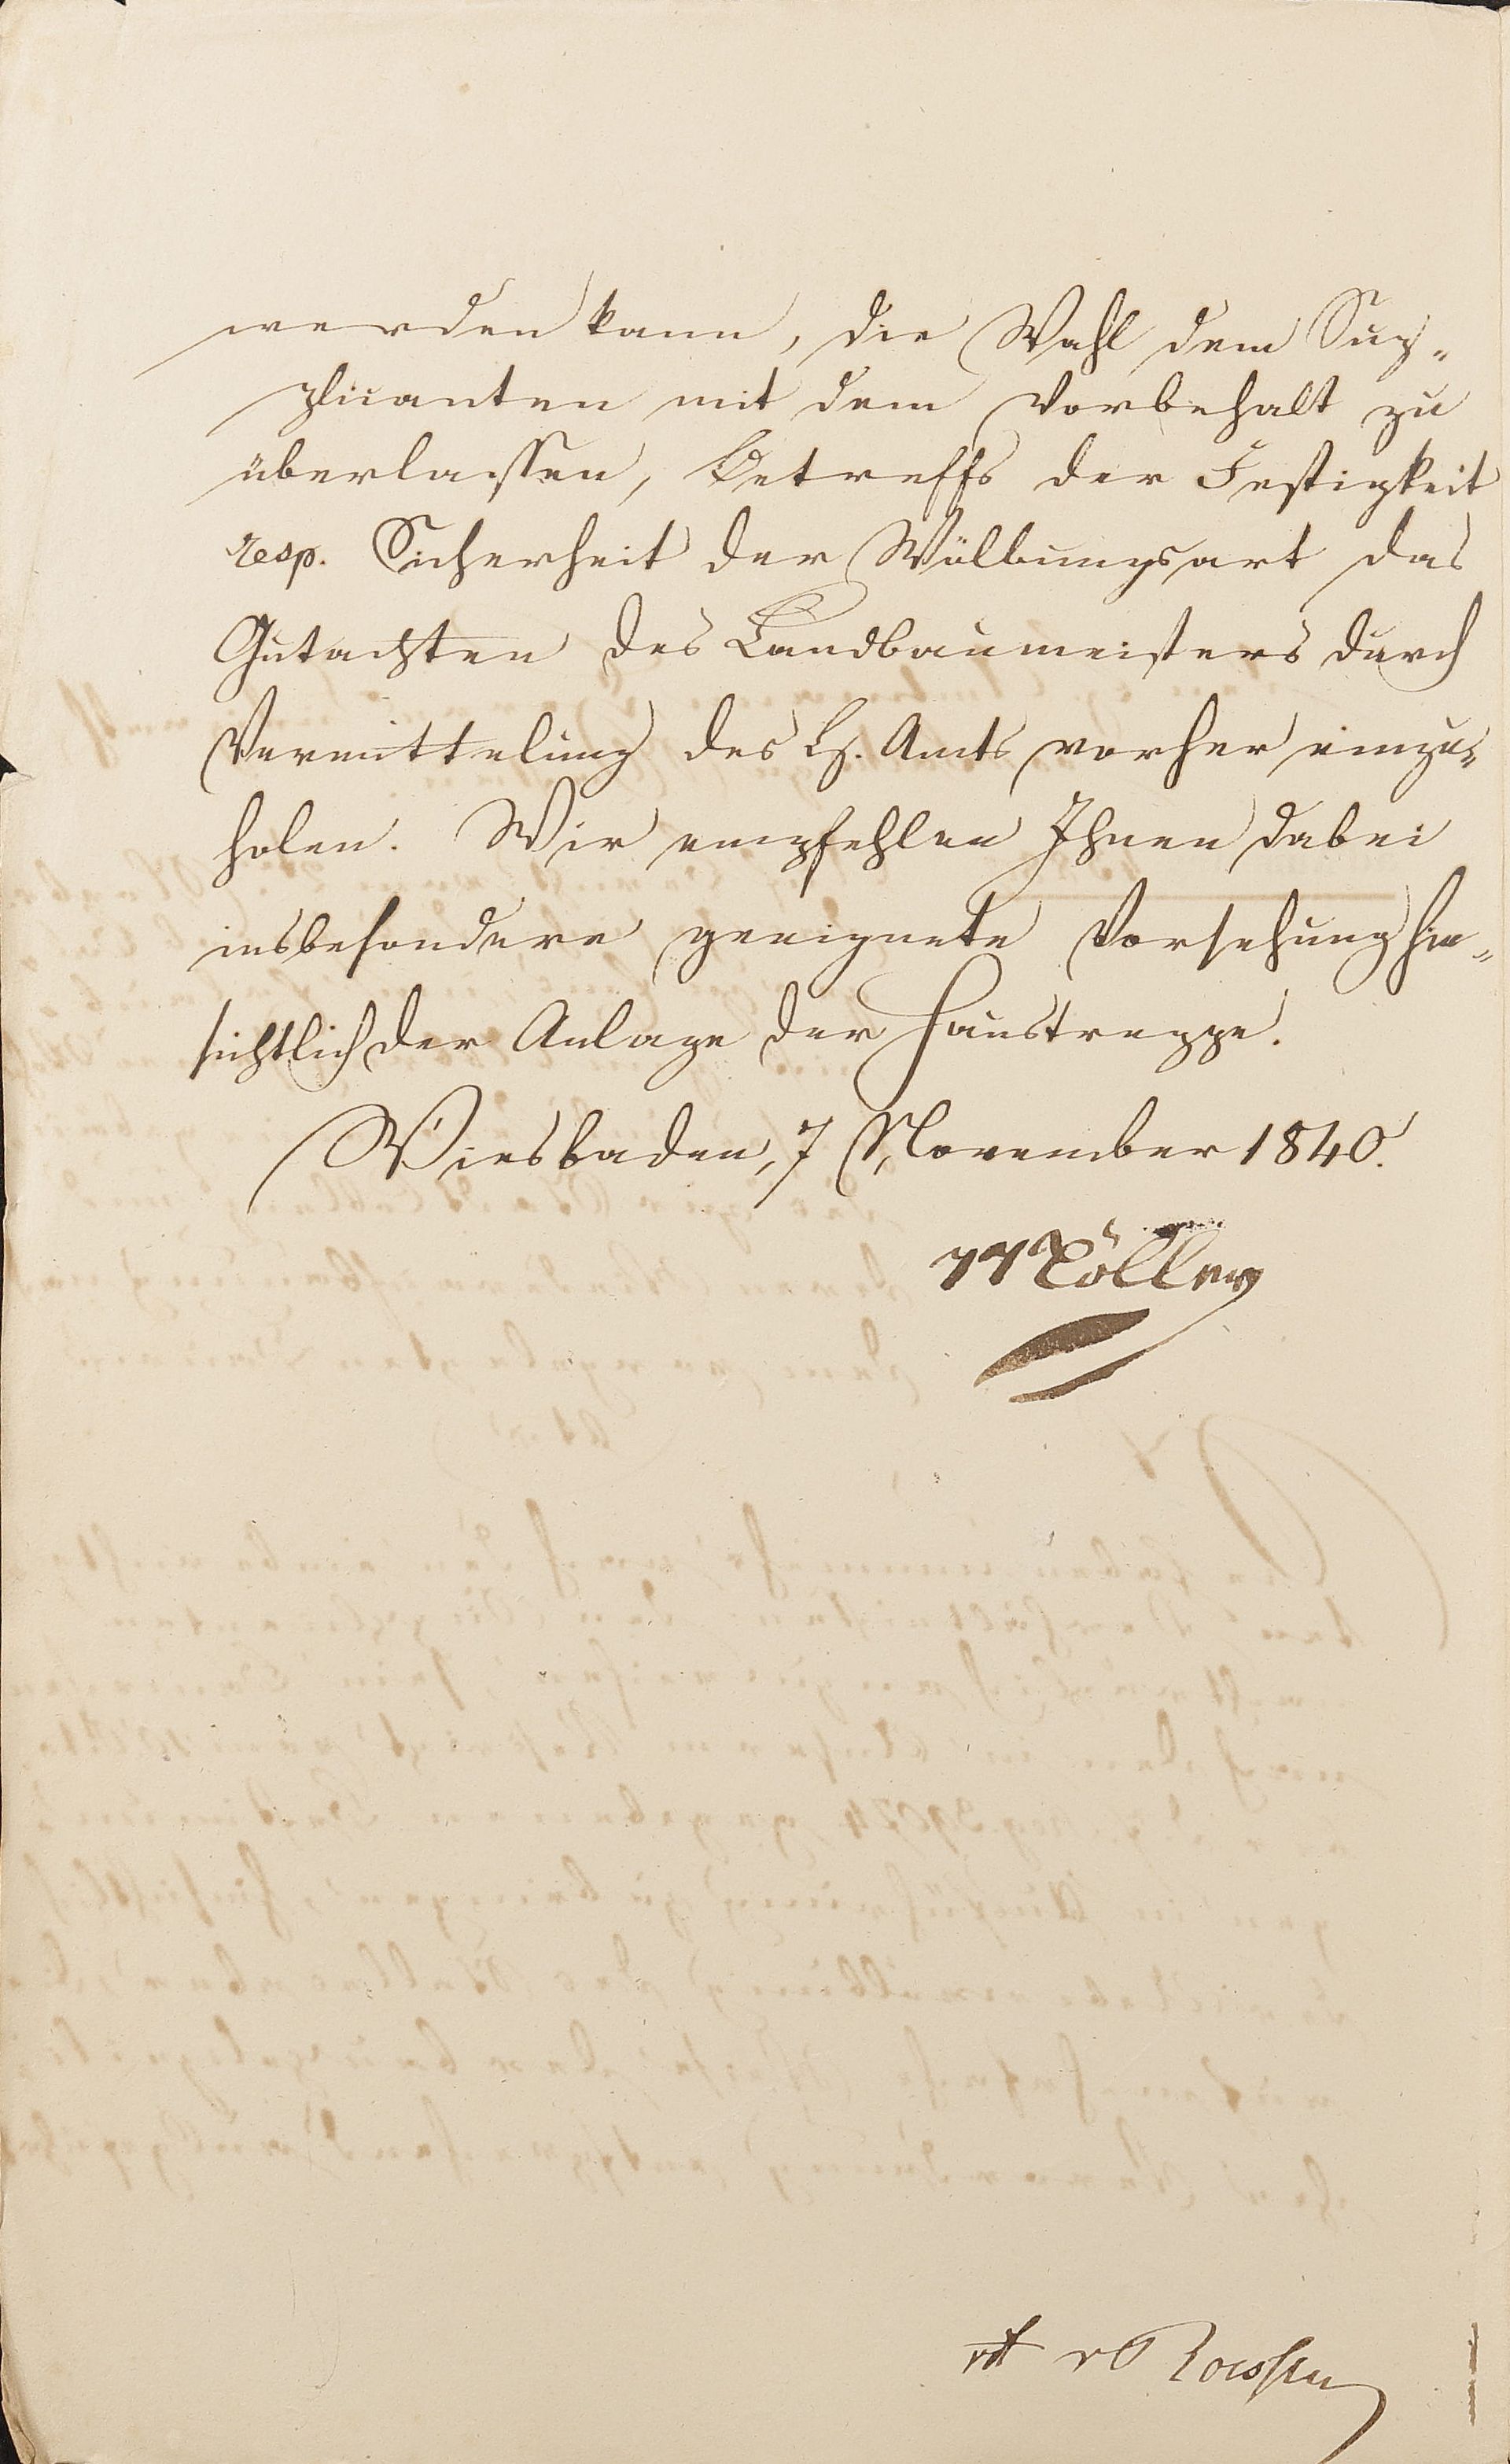 werden kann, die Wahl dem Sup-
plicanten mit dem Vorbehalt zu
überlassen, Betreffs der Festigkeit
resp. Sicherheit der Wölbungsart das
Gutachten des Landbaumeisters durch
Vermittelung des Hz. Amts vorher einzu-
holen. Wir empfehlen Ihnen dabei
insbesondere geeignete Vorsehung hin-
sichtlich der Anlage der Haustreppe.
Wiesbaden, 7 November 1840.
Möller
vdt